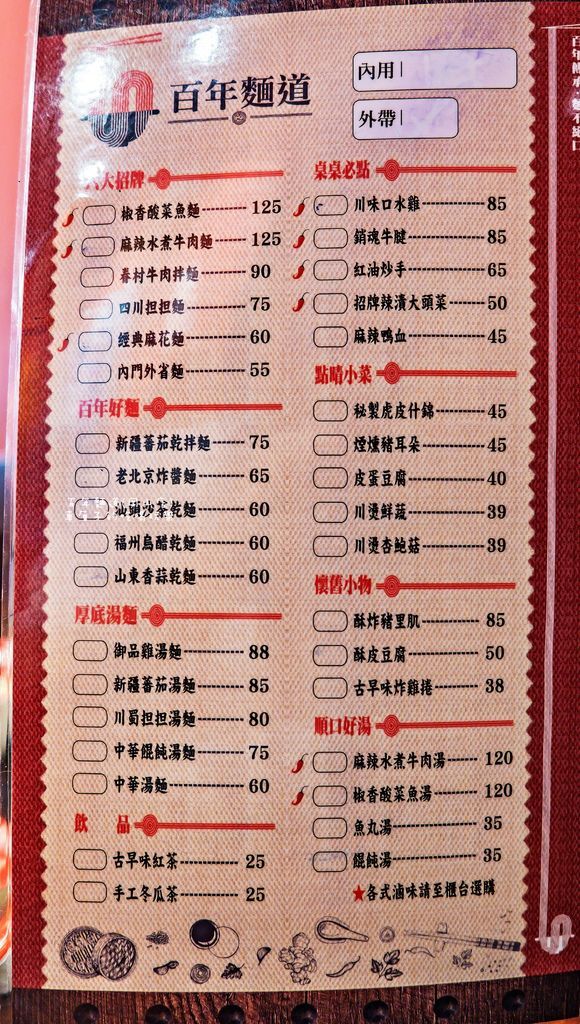 百年麵道
內用
外帶
大招牌
椒香酸菜魚麵 125
麻辣水煮牛肉麵 125
眷村牛肉拌麵 90
四川担担麵 75
經典麻花麵 60
內門外省麵 55
百年好麵
新疆蕃茄乾拌麵 75
老北京炸醬麵 65
汕頭沙茶乾麵 60
福州烏醋乾麵 60
山東香蒜乾麵 60
厚底湯麵
御品雞湯麵 88
新疆蕃茄湯麵 85
川蜀担担湯麵 80
中華餛飩湯麵 75
中華湯麵 60
飲品
古早味紅茶 25
手工冬瓜茶 25
桌桌必點
川味口水雞 85
銷魂牛腱 85
紅油炒手 65
招牌辣漬大頭菜 50
麻辣鴨血 45
點睛小菜
秘製虎皮什錦 45
煙燻豬耳朵 45
皮蛋豆腐 40
川燙鮮蔬 39
川燙杏鮑菇 39
懷舊小物
酥炸豬里肌 85
酥皮豆腐 50
古早味炸雞捲 38
順口好湯
麻辣水煮牛肉湯 120
椒香酸菜魚湯 120
魚丸湯 35
餛飩湯 35
★各式滷味請至櫃台選購